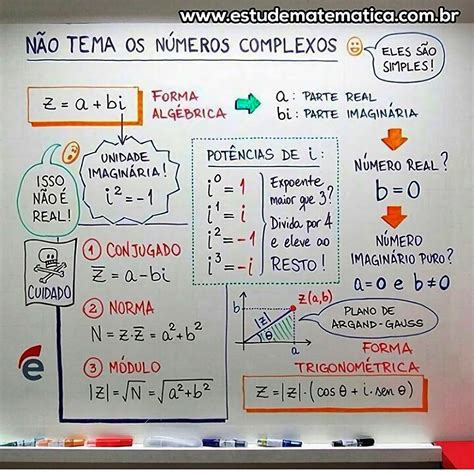 www.estudematematica.com.br
NÃO TEMA OS NÚMEROS COMPLEXOS
ELES SÃO
SIMPLES!
z = a + bi
FORMA
ALGÉBRICA
a: PARTE REAL
bi: PARTE IMAGINÁRIA
ISSO
NÃO É
REAL!
UNIDADE
IMAGINÁRIA!
i² = -1
POTÊNCIAS DE i:
i⁰ = 1
i¹ = i
i² = -1
i³ = -i
Expoente
maior que 3?
Divida por 4
e eleve ao
RESTO!
NÚMERO REAL?
b = 0
NÚMERO
IMAGINÁRIO PURO?
a = 0 e b ≠ 0
CUIDADO
1 CONJUGADO
z̅ = a - bi
2 NORMA
N = z·z̅ = a² + b²
3 MÓDULO
|z| = √N = √a² + b²
b
z(a,b)
|z|
θ
a
PLANO DE
ARGAND-GAUSS
FORMA
TRIGONOMÉTRICA
z = |z| · (cos θ + i. sen θ)
e